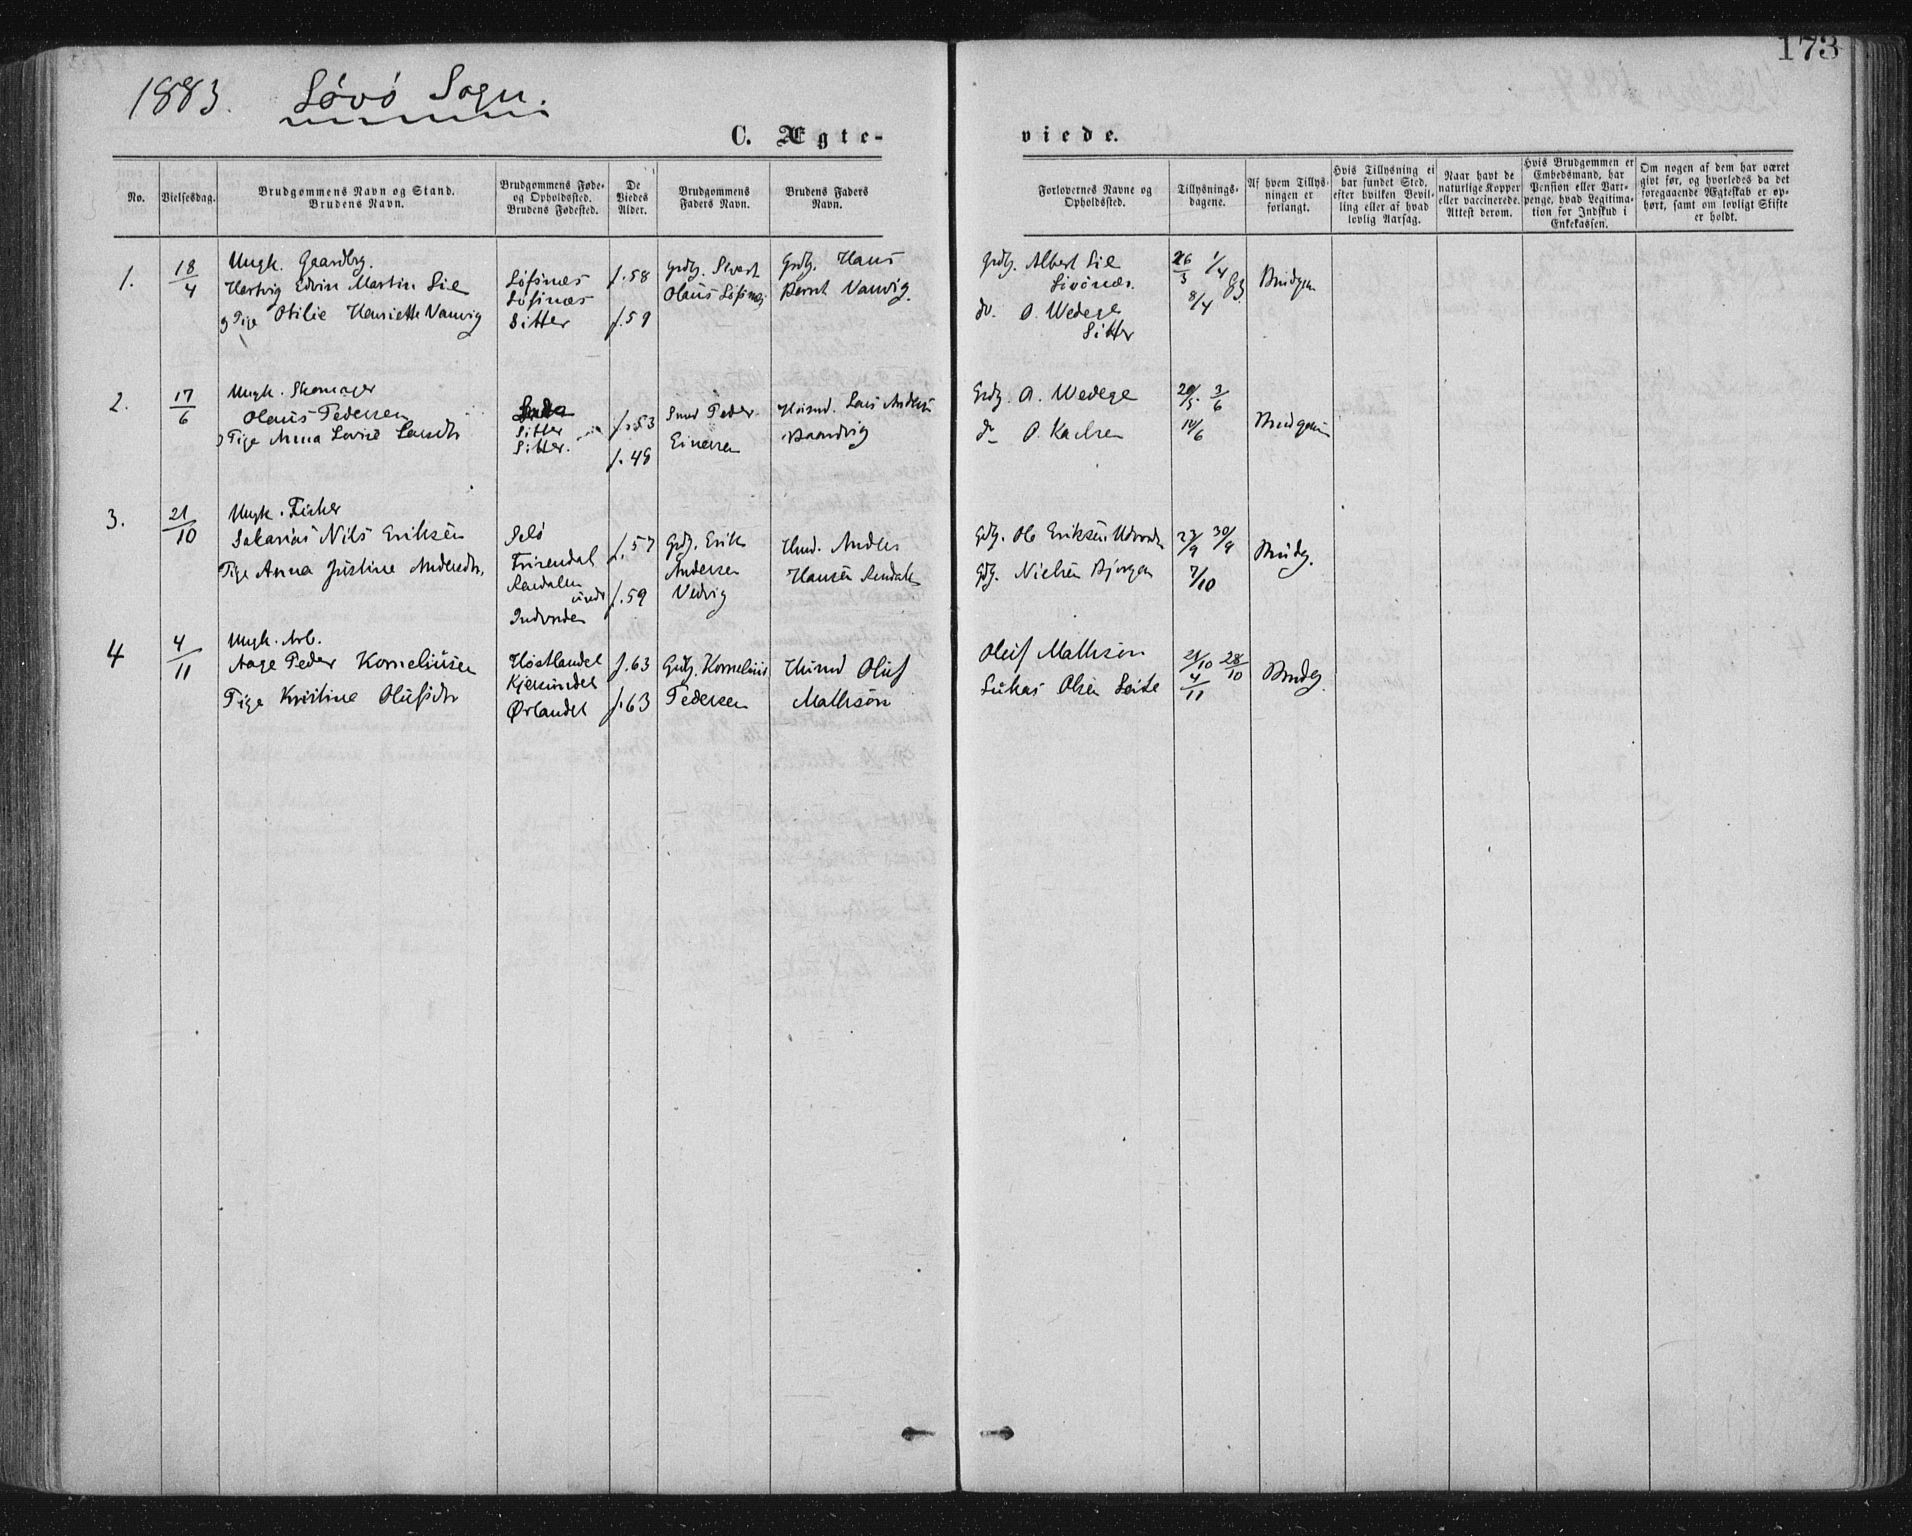 173
1883. Løvø Sogn.
C. Ægte-
viede.
No.
Vielsesdag.
Brudgommens Navn og Stand.
Brudens Navn.
Brudgommens Føde-
og Opholdssted.
Brudens Fødested.
De
Viedes
Alder.
Brudgommens
Faders Navn.
Brudens Faders
Navn.
Forlovernes Navne og
Opholdssted.
Tillysnings-
dagene.
Af hvem Tillys-
ningen er
forlangt.
Hvis Tillysning ei
har fundet Sted,
efter hvilken Bevil-
ling eller af hvad
lovlig Aarsag.
Naar havt de
naturlige Kopper
eller vaccinerede.
Attest derom.
Hvis Brudgommen er
Embedsmand, har
Pension eller Vart-
penge, hvad Legitima-
tion for Indskud i
Enkekassen.
Om nogen af dem har været
givt før, og hvorledes da det
foregaaende Ægteskab er op-
hørt, samt om lovligt Skifte
er holdt.
1.
18/4
Ungk. Gaardbrg.
Hartvig Edvin Martin Lie
Pige Otilie Henriette Vanvig
Løfsnæs
Løfsnæs
Sitter
f.58
f.59
Grdbg. Sivert
Olaus Løfsnæs
Grdbg. Hans
Bernt Vanvig.
Grdbg. Albert Lie
do. O. Wedege
Sitter
26/3 1/4 83
8/4
Brudgom
2.
17/6
Ungk. Skomager
Olaus Pedersen
Pige Anna Lovise Larsdtr
Sitter
Sitter.
f.53
f.48
Peder
Einersen
Lars Anders
Grdbg. O. Wedege
do O. Karlsen
20/5. 3/6
10/6
Brudgom
3.
21/10
Ungk. Fisker
Sakarias Nils Eriksen
Pige Anna Justine Andersdtr.
Selø
Aardalen
under
Indvorden
f.57
f.59
Grdbg. Erik
Andersen
Vedvig
Husmd. Anders
Hansen Aardalen
Grdbg. Ole Eriksen Udvorden
Gdbg. Nielsen Bjørgen
23/9 30/9
7/10
Brudg.
4
4/11
Ungk. Arb.
Aage Peder Korneliusen
Pige Kristine Olufsdtr
Høstlandet
Kjelsundet
Ørlandet
f.63
f.63
Grdbg. Kornelius
Pedersen
Husmd Oluf
Mathisen
Oluf Mathisen
Lukas Olsen Seite
21/10 28/10
4/11
Brudg.